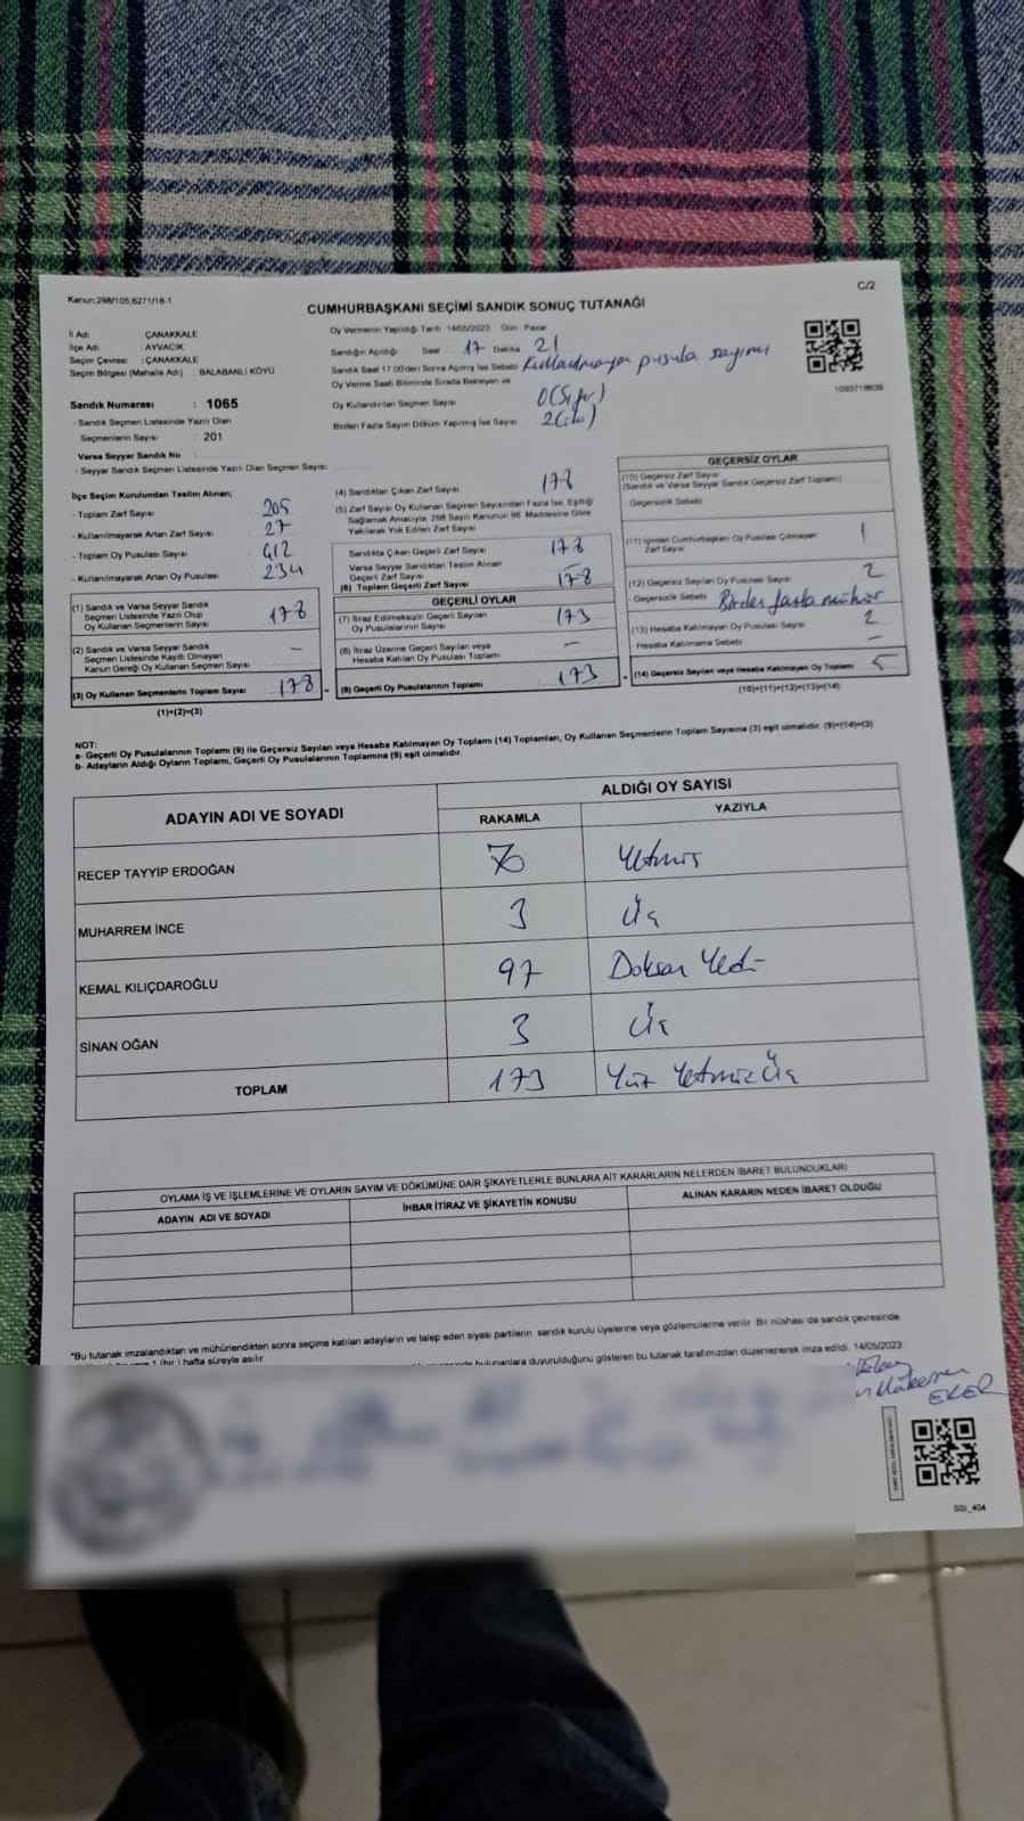 Kanun:298/105;6271/18-1
C/2
CUMHURBAŞKANI SEÇİMİ SANDIK SONUÇ TUTANAĞI
İl Adı : ÇANAKKALE
İlçe Adı : AYVACIK
Seçim Çevresi : ÇANAKKALE
Seçim Bölgesi (Mahalle Adı) : BALABANLI KÖYÜ
Oy Vermenin Yapıldığı Tarih: 14/05/2023 Gün: Pazar
Sandığın Açıldığı Saat 17 Dakika 21
Sandık Saat 17.00'den Sonra Açılmış İse Sebebi Kullanılmayan pusula sayımı
Oy Verme Saati Bitiminde Sırada Bekleyen ve
Oy Kullandırılan Seçmen Sayısı 0(Sıfır)
Birden Fazla Sayım Döküm Yapılmış İse Sayısı 2(iki)
Sandık Numarası : 1065
- Sandık Seçmen Listesinde Yazılı Olan
Seçmenlerin Sayısı 201
Varsa Seyyar Sandık No
- Seyyar Sandık Seçmen Listesinde Yazılı Olan Seçmen Sayısı
İlçe Seçim Kurulundan Teslim Alınan;
- Toplam Zarf Sayısı 205
- Kullanılmayarak Artan Zarf Sayısı 27
- Toplam Oy Pusulası Sayısı 412
- Kullanılmayarak Artan Oy Pusulası 234
(1) Sandık ve Varsa Seyyar Sandık
Seçmen Listesinde Yazılı Olup
Oy Kullanan Seçmenlerin Sayısı 178
(2) Sandık ve Varsa Seyyar Sandık
Seçmen Listesinde Kayıtlı Olmayan
Kanun Gereği Oy Kullanan Seçmen Sayısı –
(3) Oy Kullanan Seçmenlerin Toplam Sayısı 178
(1)+(2)=(3)
(4) Sandıktan Çıkan Zarf Sayısı 178
(5) Zarf Sayısı Oy Kullanan Seçmen Sayısından Fazla İse, Eşitliği
Sağlamak Amacıyla, 298 Sayılı Kanunun 98. Maddesine Göre
Yakılarak Yok Edilen Zarf Sayısı –
Sandıkta Çıkan Geçerli Zarf Sayısı 178
Varsa Seyyar Sandıktan Teslim Alınan
Geçerli Zarf Sayısı –
(6) Toplam Geçerli Zarf Sayısı 178
GEÇERLİ OYLAR
(7) İtiraz Edilmeksizin Geçerli Sayılan
Oy Pusulalarının Sayısı 173
(8) İtiraz Üzerine Geçerli Sayılan veya
Hesaba Katılan Oy Pusulası Toplamı –
(9) Geçerli Oy Pusulalarının Toplamı 173
GEÇERSİZ OYLAR
(10) Geçersiz Zarf Sayısı
(Sandık ve Varsa Seyyar Sandık Geçersiz Zarf Toplamı)
Geçersizlik Sebebi
(11) İçinden Cumhurbaşkanı Oy Pusulası Çıkmayan
Zarf Sayısı 1
(12) Geçersiz Sayılan Oy Pusulası Sayısı 2
Geçersizlik Sebebi Birden fazla mühür
(13) Hesaba Katılmayan Oy Pusulası Sayısı 2
Hesaba Katılmama Sebebi –
(14) Geçersiz Sayılan veya Hesaba Katılmayan Oy Toplamı 5
(10)+(11)+(12)+(13)=(14)
NOT:
a- Geçerli Oy Pusulalarının Toplamı (9) ile Geçersiz Sayılan veya Hesaba Katılmayan Oy Toplamı (14) Toplamları, Oy Kullanan Seçmenlerin Toplam Sayısına (3) eşit olmalıdır. (9)+(14)=(3)
b- Adayların Aldığı Oyların Toplamı, Geçerli Oy Pusulalarının Toplamına (9) eşit olmalıdır.
ADAYIN ADI VE SOYADI
ALDIĞI OY SAYISI
RAKAMLA YAZIYLA
RECEP TAYYİP ERDOĞAN 70 Yetmiş
MUHARREM İNCE 3 Üç
KEMAL KILIÇDAROĞLU 97 Doksan Yedi
SİNAN OĞAN 3 Üç
TOPLAM 173 Yüz Yetmiş Üç
OYLAMA İŞ VE İŞLEMLERİNE VE OYLARIN SAYIM VE DÖKÜMÜNE DAİR ŞİKAYETLERLE BUNLARA AİT KARARLARIN NELERDEN İBARET BULUNDUKLARI
ADAYIN ADI VE SOYADI İHBAR İTİRAZ VE ŞİKAYETİN KONUSU ALINAN KARARIN NEDEN İBARET OLDUĞU
"Bu tutanak imzalandıktan ve mühürlendikten sonra seçime katılan adayların ve talep eden siyasi partilerin sandık kurulu üyelerine veya gözlemcilerine verilir. Bir nüshası da sandık çevresinde
1 (bir) hafta süreyle asılır. bulunanlara duyurulduğunu gösteren bu tutanak tarafımızdan düzenlenerek imza edildi. 14/05/2023
EKER
GSI_404